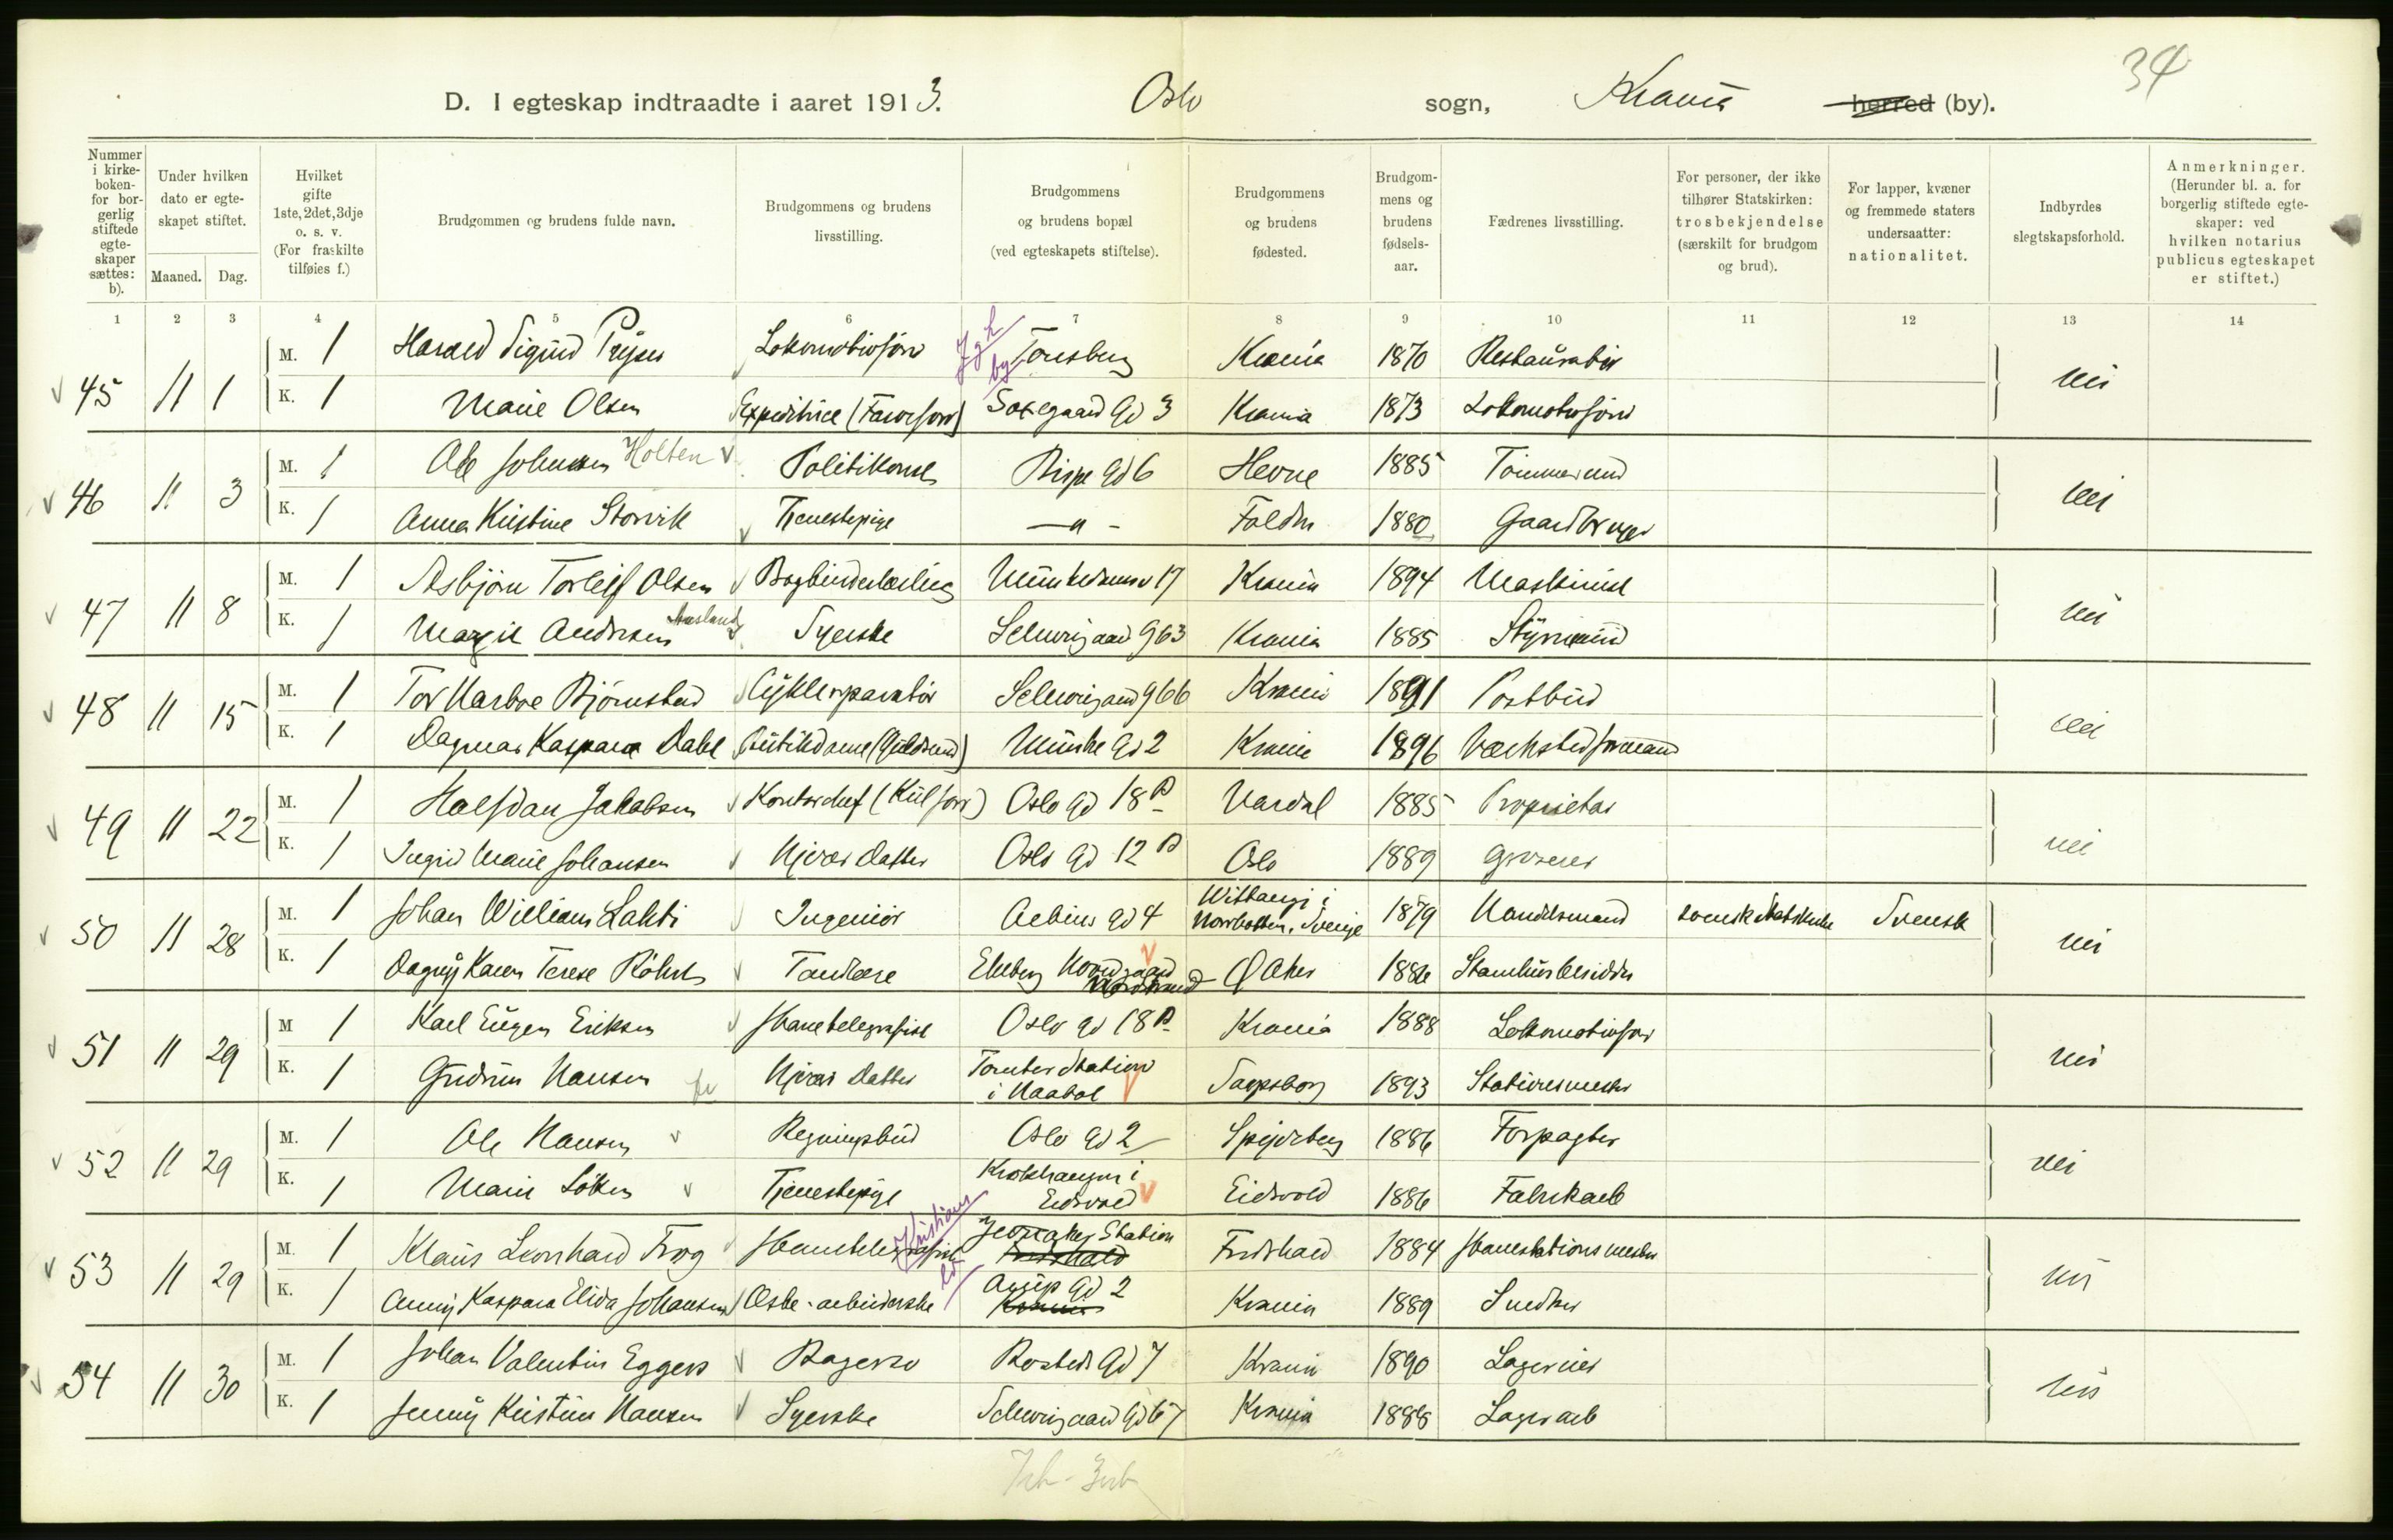 34
D. I egteskap indtraadte i aaret 1913. Oslo sogn, Krania herred (by).
Nummer i kirke-boken- for bor-gerlig stiftede egte-skaper sættes: b).
Under hvilken dato er egte-skapet stiftet.
Maaned. Dag.
Hvilket gifte 1ste, 2det, 3dje o. s. v. (For fraskilte tilføies f.)
Brudgommen og brudens fulde navn.
Brudgommens og brudens livsstilling.
Brudgommens og brudens bopæl (ved egteskapets stiftelse).
Brudgommens og brudens fødested.
Brudgom-mens og brudens fødsels-aar.
Fædrenes livsstilling.
For personer, der ikke tilhører Statskirken: trosbekjendelse (særskilt for brudgom og brud).
For lapper, kvæner og fremmede staters undersaatter: nationalitet.
Indbyrdes slegtskapsforhold.
Anmerkninger. (Herunder bl. a. for borgerlig stiftede egte-skaper: ved hvilken notarius publicus egteskapet er stiftet.)
1 2 3 4 5 6 7 8 9 10 11 12 13 14
45 11 1 M. 1 Harald Sigurd Pryser Lokomotivförer Tönsberg Krania 1870 Restauratör nei
K. 1 Marie Olsen Expeditrice (Farveforr) Saxegaard Gd 3 Krania 1873 Lokomotivförer
46 11 3 M. 1 Ole Johnsen Holten Politikonst Bispe Gd 6 Hevne 1885 Tömmermd nei
K. 1 Anna Kristine Storvik Tjenestepige — " - Folden 1880 Gaardbruger
47 11 8 M. 1 Asbjörn Torleif Olsen Bogbinderlærling Munkedamsv 17 Krania 1894 Maskinist nei
K. 1 Margit Andersen Aasland Syerske Schweigaard G 63 Krania 1885 Styrmand
48 11 15 M. 1 Tor Harboe Björnstad Cyklereparatör Schweigaard G 66 Krania 1891 Postbud nei
K. 1 Dagmar Kaspara Dahl Butikdame (Guldsmd) Munke Gd 2 Krania 1896 Værkstedformand
49 11 22 M. 1 Halfdan Jakobsen Kontorchef (Kulforr) Oslo Gd 18 B Vardal 1885 Proprietær nei
K. 1 Ingrid Marie Johansen Hjvær Datter Oslo Gd 12 B Oslo 1889 Grosserer
50 11 28 M. 1 Johan William Lahti Ingeniör Gd 4 Wittangi i Norrbotten, Sverige 1879 Handelsmand svensk Statskirke Svensk nei
K. 1 Dagny Karen Terese Röhrt Tandlæge Ekeberg Hovedgaard Aker 1886 Stamhusbesidder
51 11 29 M 1 Karl Eugen Eriksen Banetelegrafist Oslo Gd 18 B Krania 1888 Lokomotivfyr nei
K. 1 Gudrun Hansen Hjvær Datter Tomter Station i Haabol Sarpsborg 1893 Stationsmester
52 11 29 M. 1 Ole Hansen Regningsbud Oslo Gd 2 Spydeberg 1886 Forpagter nei
K. 1 Marie Löken Tjenestepige Krokhaugen i Eidsvold Eidsvold 1886 Fabrikarb
53 11 29 M. 1 Klaus Leonhard Frog Banetelegrafist Kristians Station Fredrikshald Fredrshald 1884 Banestationsmester nei
K. 1 Anny Kaspara Elida Johansen Æske-arbeiderske Arups Gd 2 Krania Krania 1889 Snedker
54 11 30 M. 1 Johan Valentin Eggers Bagersv Rosteds Gd 7 Krania 1890 Lagermes nei
K. 1 Jenny Kristine Hansen Syerske Schweigaard Gd 67 Krania 1888 Lagerarb